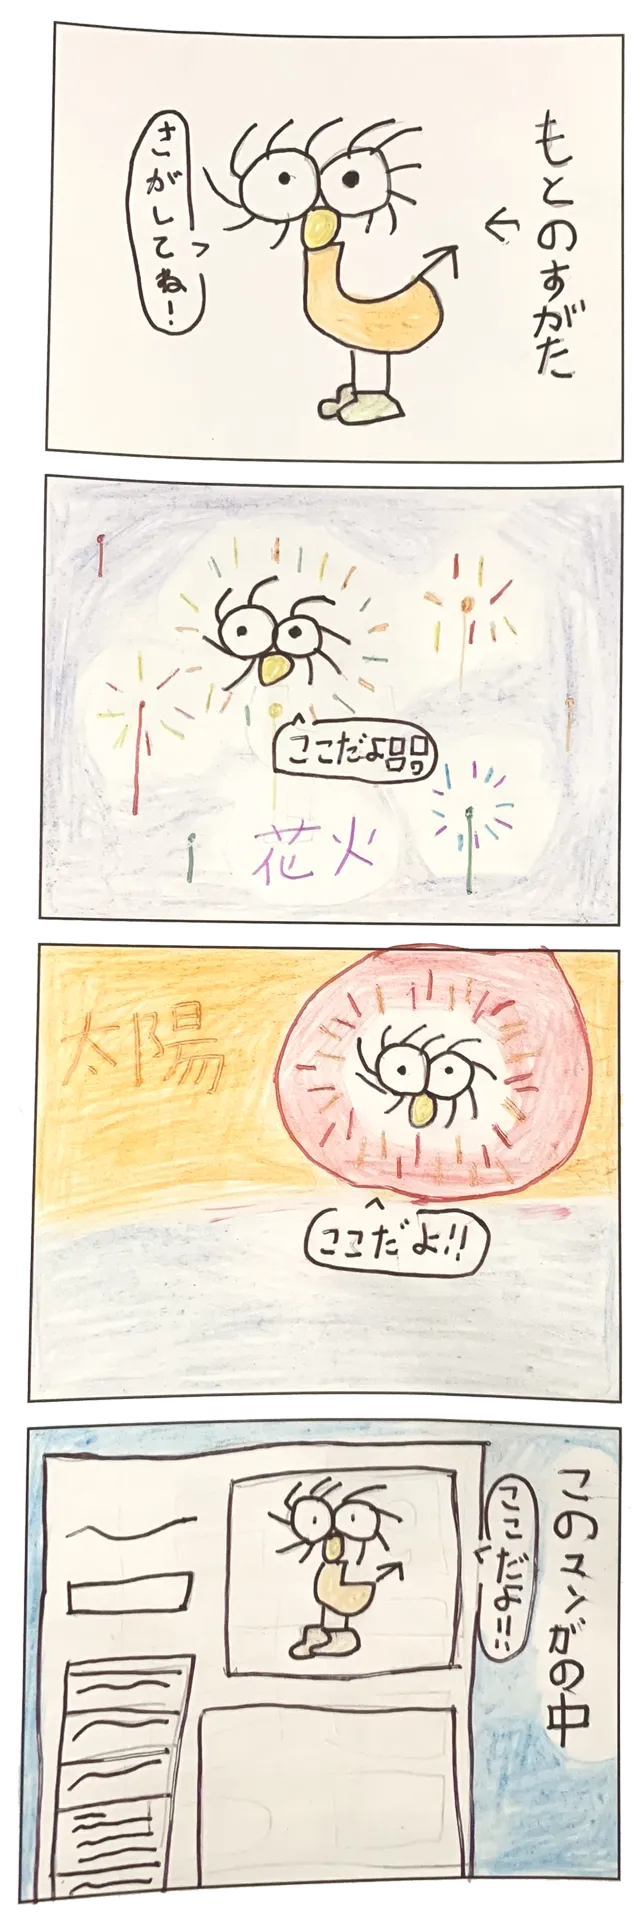 もとのすがた
←
さがしてね！
ここだよ
花火
太陽
ここだよ!!
このマンガの中
ここだよ!!